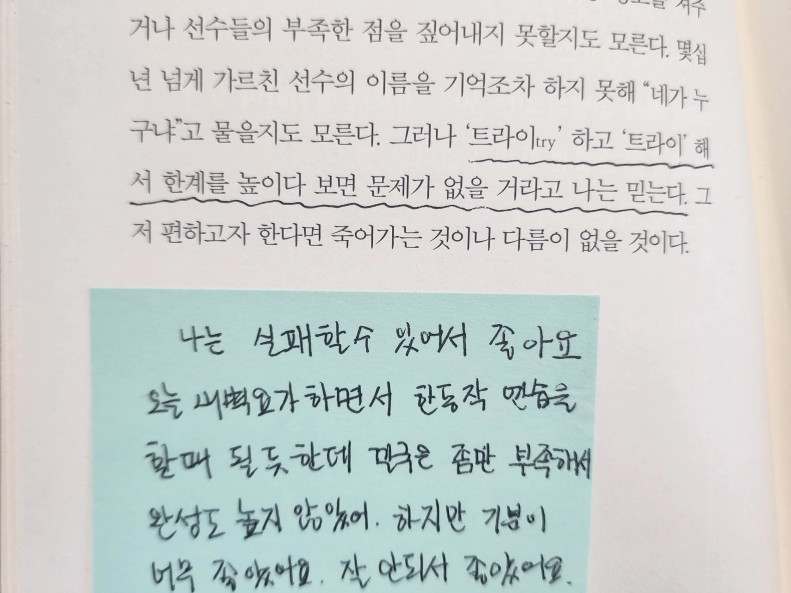 거나 선수들의 부족한 점을 짚어내지 못할지도 모른다. 몇십
년 넘게 가르친 선수의 이름을 기억조차 하지 못해 “네가 누
구냐”고 물을지도 모른다. 그러나 ‘트라이try’ 하고 ‘트라이’ 해
서 한계를 높이다 보면 문제가 없을 거라고 나는 믿는다. 그
저 편하고자 한다면 죽어가는 것이나 다름이 없을 것이다.
나는 실패할수 있어서 좋아요
오늘 새벽요가 하면서 한동작 연습을
할때 될듯한데 결국은 좀만 부족해서
완성도 높지 않았어. 하지만 기분이
너무 좋았어요. 잘 안되서 좋았어요.